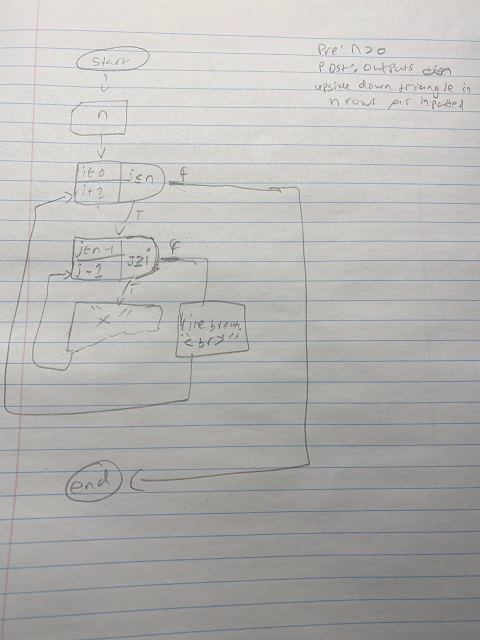 Start
Pre: n>0
Post: outputs
upside down triangle in
n rows as inputted
n
i←0
i+2
i≤n
f
T
j←n-1
j-1
j≥i
f
T
"x"
line break
"<br>"
end